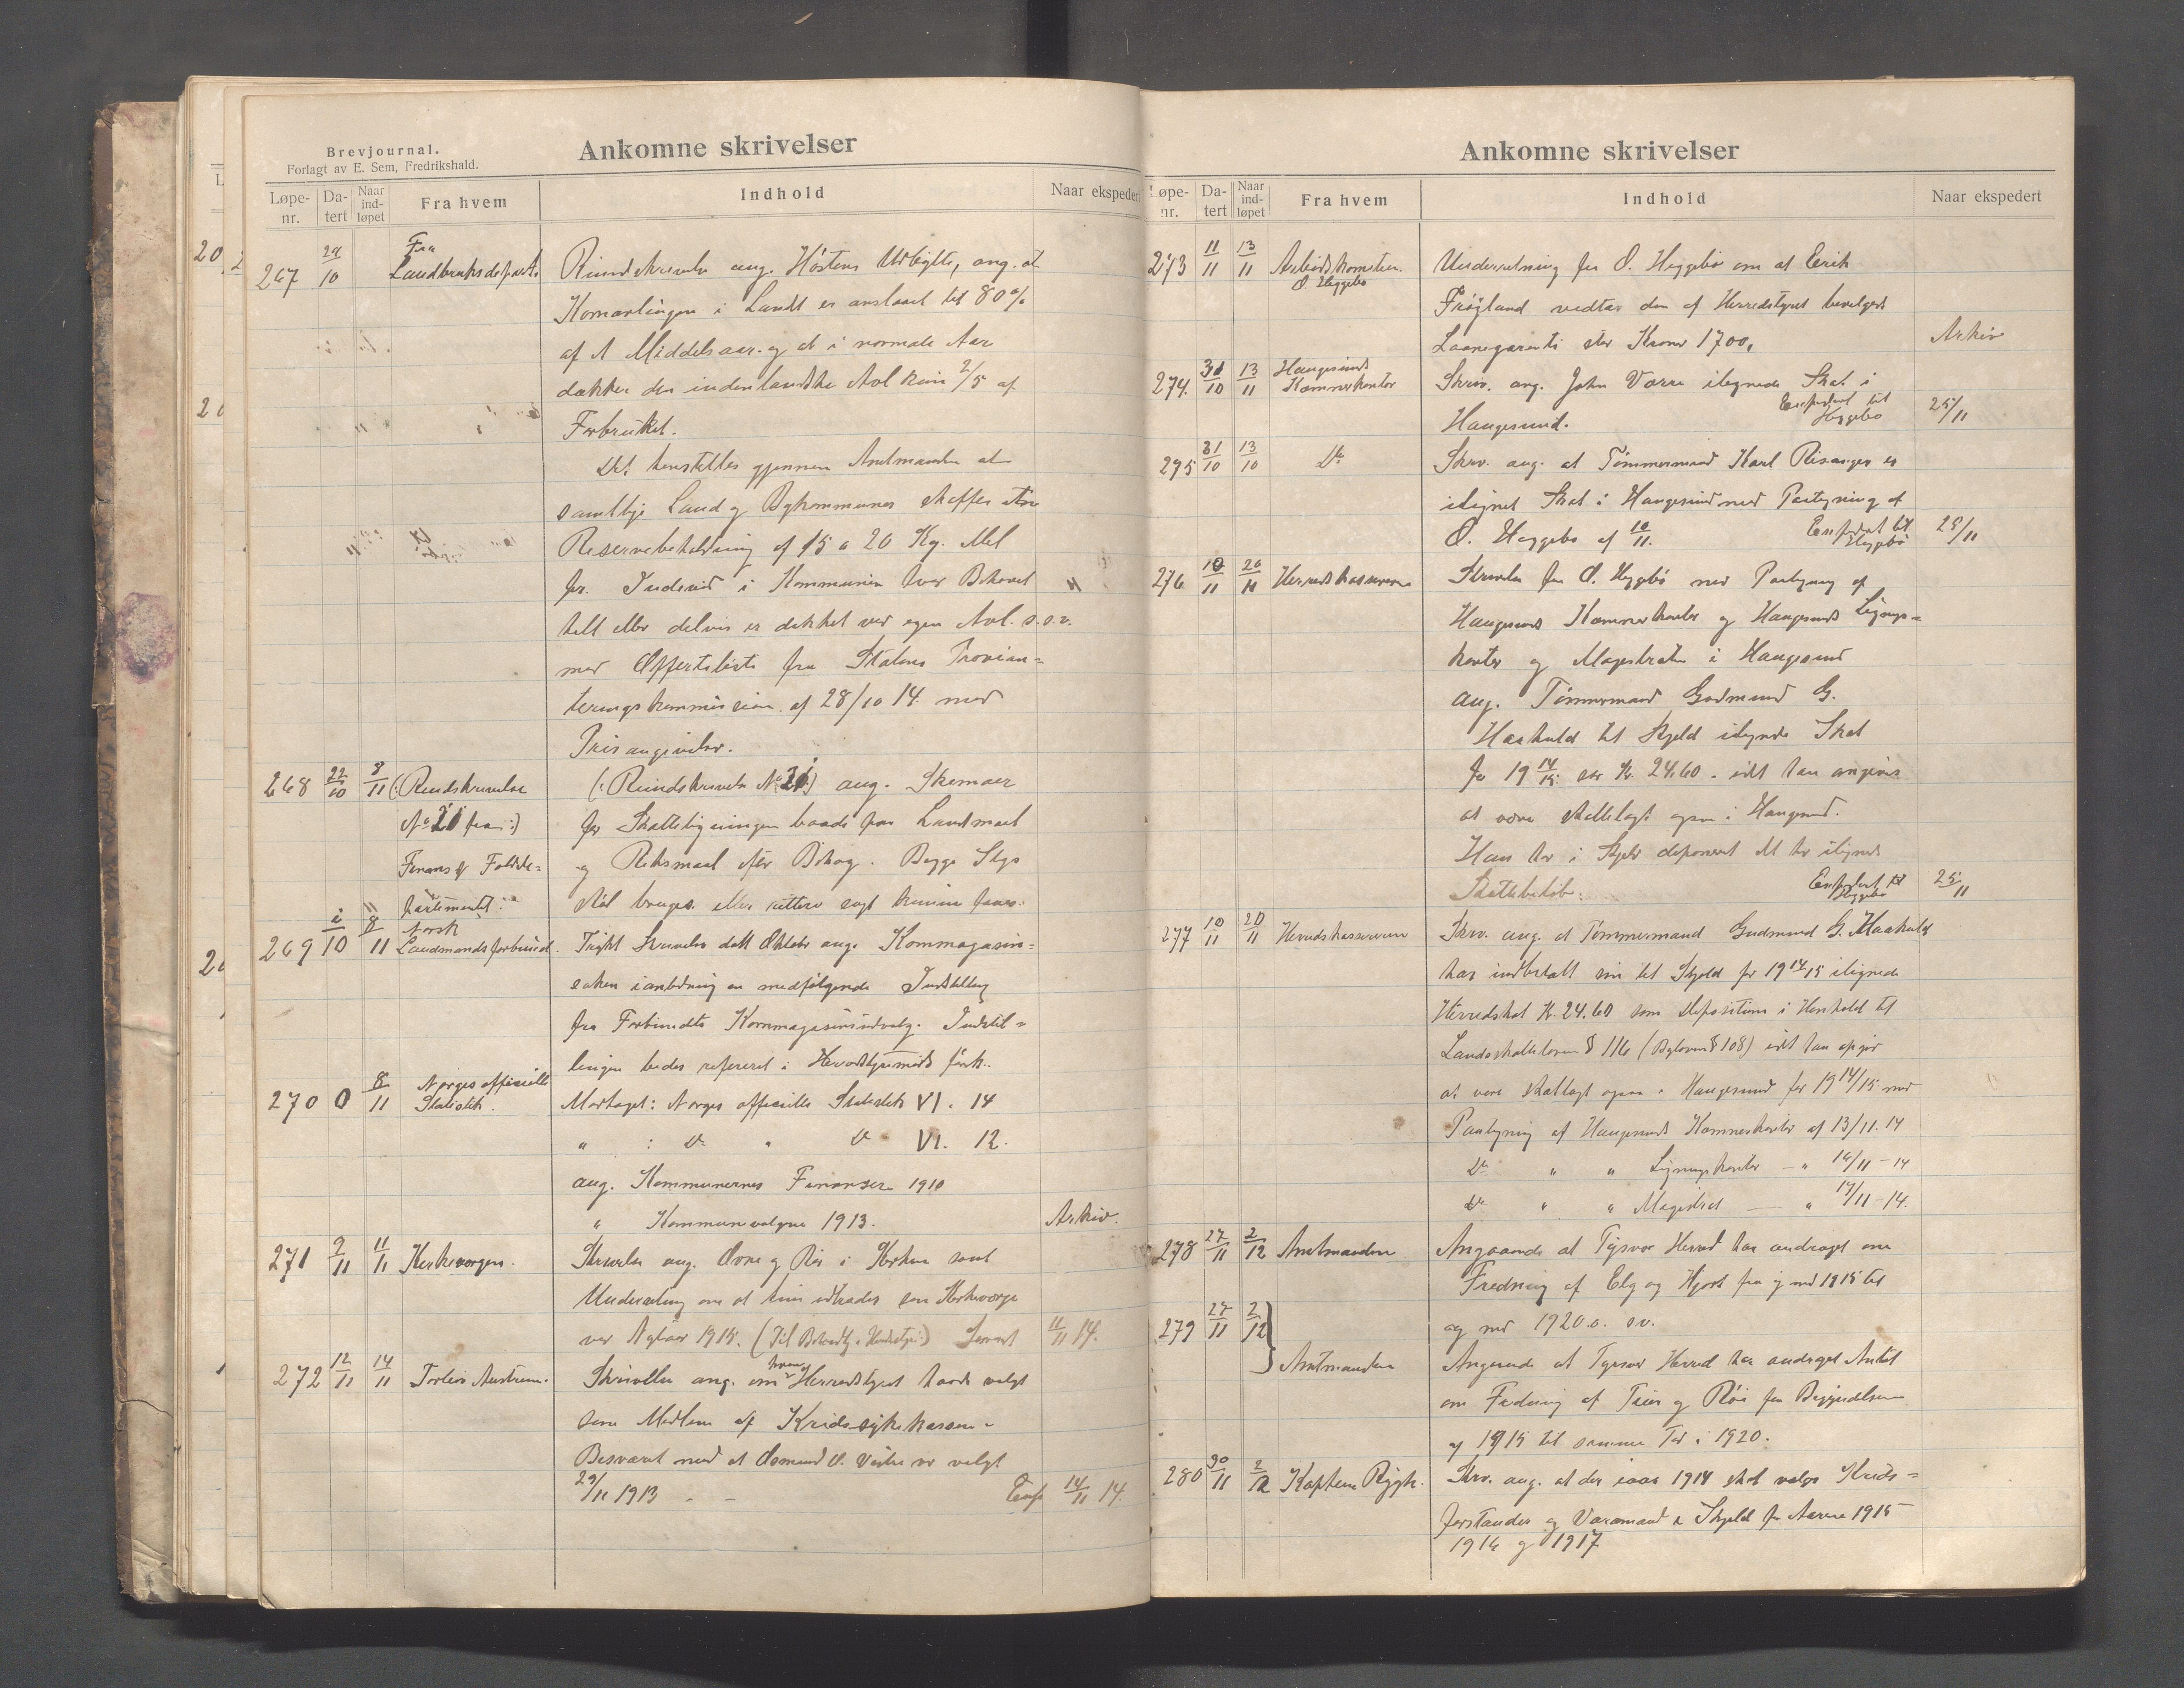 Brevjournal.
Forlagt av E. Sem, Fredrikshald.
Ankomne skrivelser
Løpe-nr. Da-tert Naar ind-løpet Fra hvem Indhold Naar ekspedert
267 29/10 Fra Landbruksdepart. Rundskrivelse ang. Høstens Udbytte, ang. at
Kornavlingen i Landt er anslaaet til 80 %
af 1 Middelsaar og at i normale Aar
dækker den indenlandske Avl kun 2/5 af
Forbruket.
Det henstilles gjennem Amtmanden at
samtlige Land og Bykommuner skaffer
Reservebeholdning af 15 a 20 Kg. Mel
pr. Individ i Kommunen hvor Behovet
helt eller delvis er dækket ved egen Avl. o.s.v.
med Offertliste fra Statens Provian=
teringskommission af 28/10 14 med
Prisangivelse.
268 22/10 8/11 (: Rundskrivelse (: Rundskrivelse No 21 :) ang. Skemaer
No 21 fra :) for Skatteligningen baade paa Landmaal
Finans og Toldde= og Riksmaal efter Behag. Begge Slgs
partementet skal bruges
269 10 8/11 Norsk Landmandsforbund. Trykt Skrivelse datt Oktober ang. Kornmagasin=
saken i anledning en medfølgende Indstilling
fra Forbundets Kornmagasinsudvalg. Indstil=
lingen bedes referert i Herredstyremøde først.
270 0 8/11 Norges officielle Statistik. Modtaget: Norges officielle Statistik VI. 14
" : Do " Do VI. 12.
ang. Kommunernes Finanser 1910
" Kommunevalgene 1913. Arkiv.
271 9/11 11/11 Kirkevergen. Skrivelse ang. Ovne og Rør i Kirken samt
Underretning om at han udtræder som Kirkeverge
ved Nytaar 1915. 11/11 14.
272 12/11 14/11 Torleiv Austrum. Skrivelse ang. om hvem Herredstyret havde valgt
som Medlem af Kredssykekassen.
Besvaret med at Osmund O. Våslie var valgt
29/11 1913 - - Eksp 14/11 14.
Ankomne skrivelser
Løpe-nr. Da-tert Naar ind-løpet Fra hvem Indhold Naar ekspedert
273 11/11 13/11 O. Heggebø Underretning fra O. Heggebø om at Eerik
Frøyland vedtar den af Herredstyret bevilgede
Laanegaranti stor Kroner 1700, Arkiv
274. 31/10 13/11 Haugesunds Kæmnerkontor Skriv. ang. John Vorre ilignede Skat i
Haugesund. Ekspedert til Heggebø 25/11
275 31/10 13/10 Do Skriv. ang. at Tømmermand Karl Risanger er
ilignet Skat i Haugesund med Paategning af
O. Heggebø af 10/11. Ekspedert til Heggebø 25/11
276 10/11 20/11 Herredskassereren Skrivelse fra O. Heggebø med Paategning af
Haugesunds Kæmnerkontor og Haugesunds Lignings=
kontor og Magistraten i Haugesund
ang. Tømmermand Gudmund G.
Haakuld til Skjold ilignede Skat
for 19 14/15 stor Kr. 24.60. idet han angives
at være skattelagt ogsaa i Haugesund.
Han har i Skjold deponeret det her ilignede
Skattebeløb. Ekspedert til Heggebø 25/11
277 10/11 20/11 Herredskassereren Skriv. ang. at Tømmermand Gudmund G. Haakuld
har indbetalt sin til Skjold for 19 14/15 ilignede
Herredskat Kr. 24.60 som Depositum i Henhold til
Landsskatteloven § 116 (Byloven § 108) idet han opgir
at være skatlagt ogsaa i Haugesund for 19 14/15 med
Paategning af Haugesunds Kæmnerkontor af 13/11. 14
Do " " Ligningskontor - " 16/11 - 14
Do " " Magistrat — " 17/11 - 14.
278 27/11 2/12 Amtmanden Angaaende at Tysvær Herred har andraget om
Fredning af Elg og Hjort fra og med 1915 til
og med 1920 o. s.v.
279 27/11 2/12 } Amtmanden Angaaende at Tysvær Herred har andraget Amtet
om Fredning af Tiur og Røi fra Begyndelsen
af 1915 til samme Tid i 1920.
280 30/11 2/12 Kaptein Rygh. Skriv. ang. at der iaar 1914 skal velges Kreds=
forstander og Varamand i Skjold for Aarene 1915
1916 og 1917